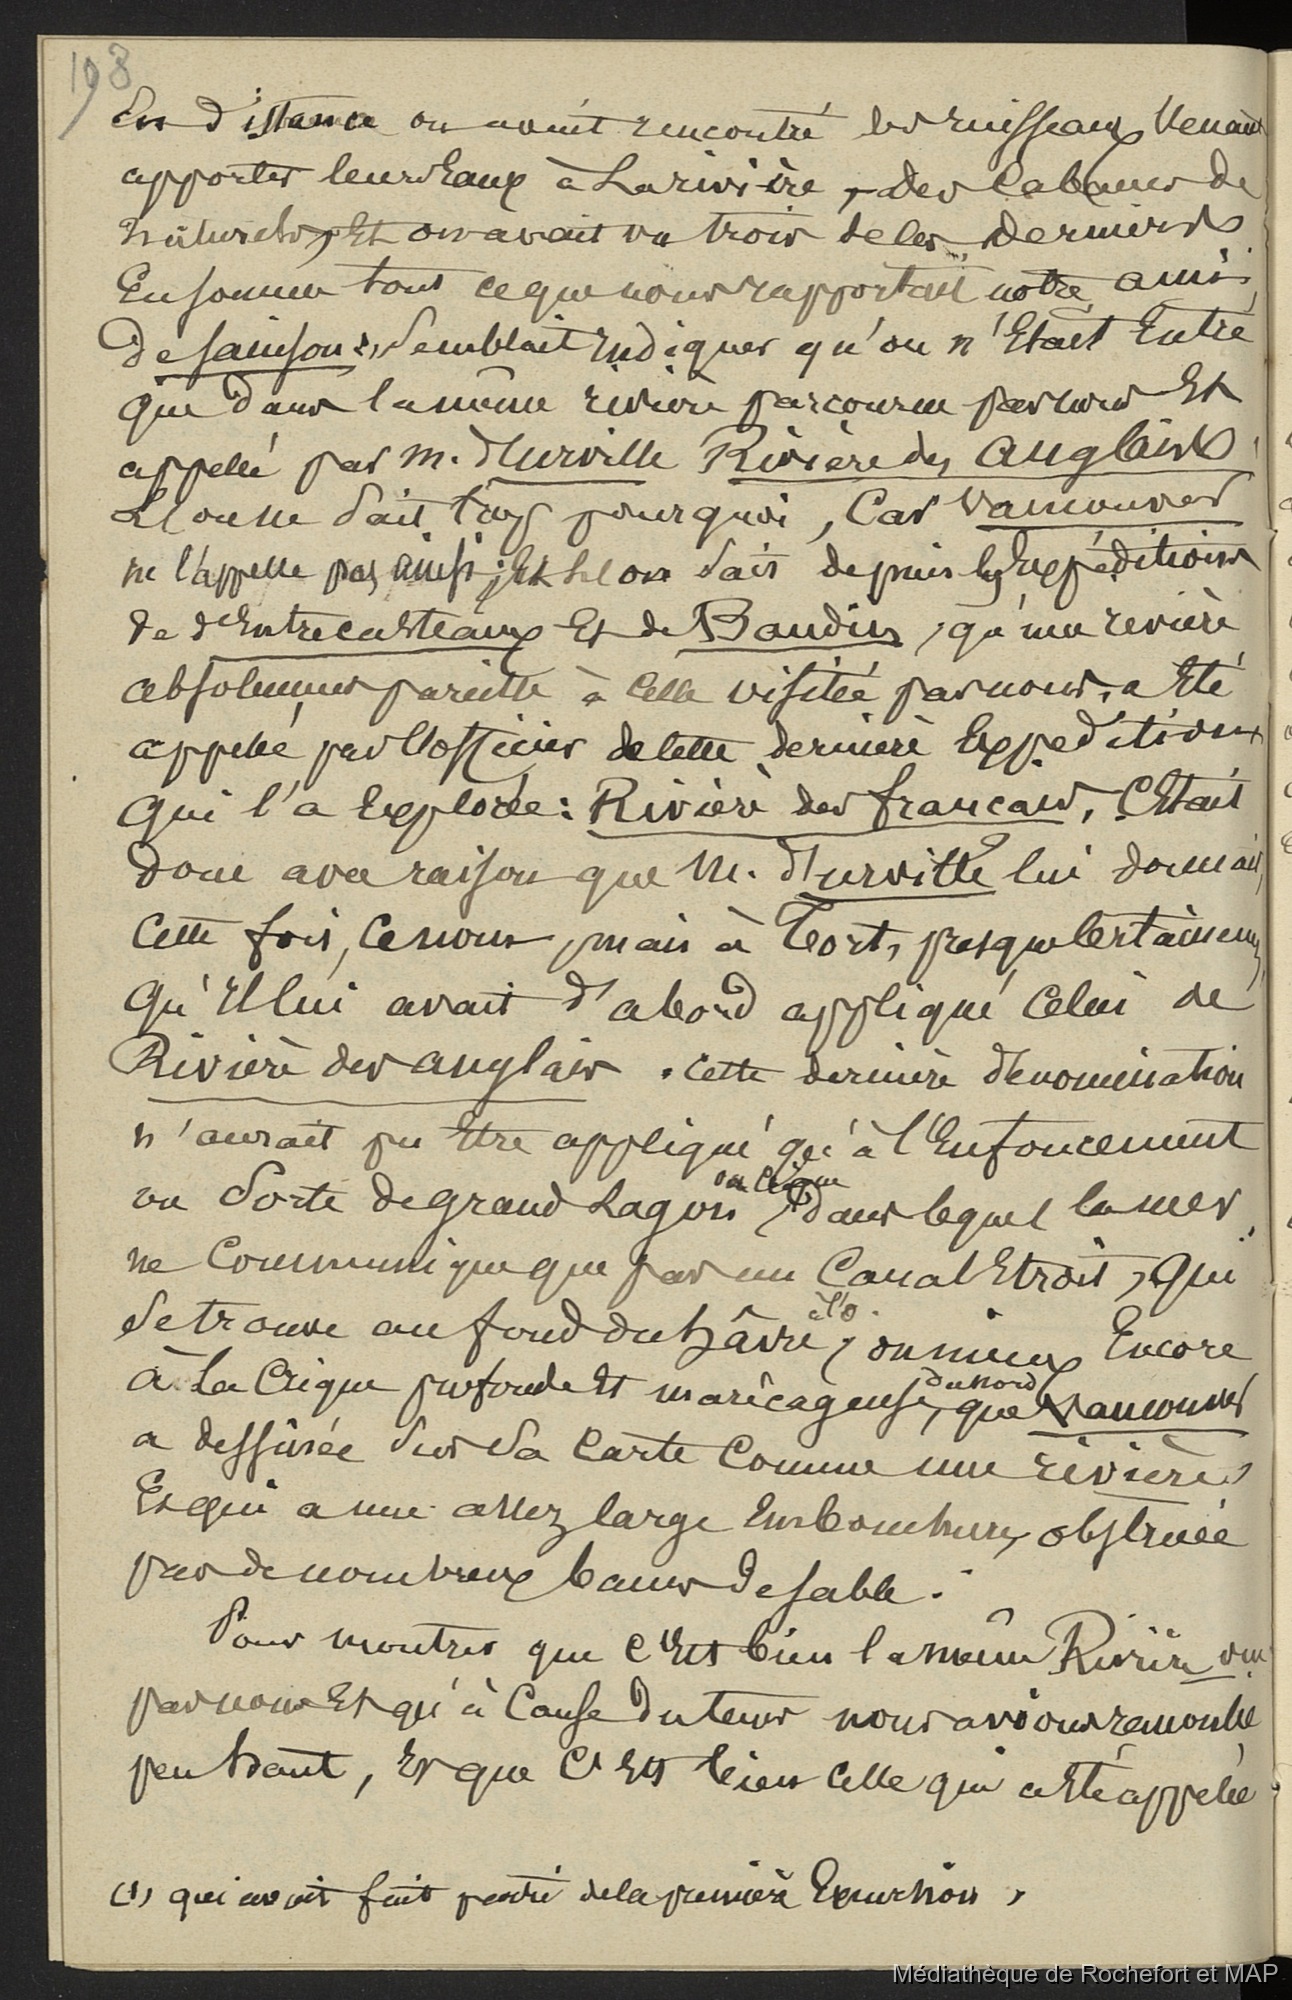 198
En distance on avait rencontré des ruisseaux venant
apporter leurs Eaux à La rivière, des Cabanes de
naturels, Et on avait vu trois de ces derniers
En somme tout ce que nous rapportait notre ami
de sainson semblait indiquer qu'on n'Etait Entré
que dans la même rivière parcourue par nous Et
appelé par m. d'urville Rivière des anglais
Et on ne sait trop pourquoi, Car Vancouver
ne l'appelle pas ainsi; Et l'on sait depuis les Expéditions
de d'Entrecasteaux Et de Baudin, qu'une rivière
absolument pareille à Celle visitée par nous, a Eté
appelée par l'officier de cette dernière Expédition
qui l'a Explorée: Rivière des français. C'Etait
donc avec raison que M. d'urville lui donnait,
cette fois, ce nom, mais à Tort, presque Certainement,
qu'il lui avait d'abord appliqué Celui de
Rivière des anglais. cette dernière dénomination
n'aurait pu Etre appliqué qu'à l'Enfoncement
ou sorte de grand Lagon ou Crique, dans lequel la mer
ne Communique que par un Canal Etroit, qui
se trouve au fond du hâvre, à l'o. ou mieux Encore
à La Crique profonde Et marécageuse, du nord que Vancouver
a dessinée sur sa Carte Comme une rivière
Et qui a une assez large Embouchure, obstruée
par de nombreux bancs de sable.
Pour montrer que C'Est bien la même Rivière vue
par nous Et qu'à Cause du tems nous avions remontée
peu haut, Et que C'Est bien celle qui a Eté appelée
(1) qui avait fait partie de la première Excursion,
Médiathèque de Rochefort et MAP